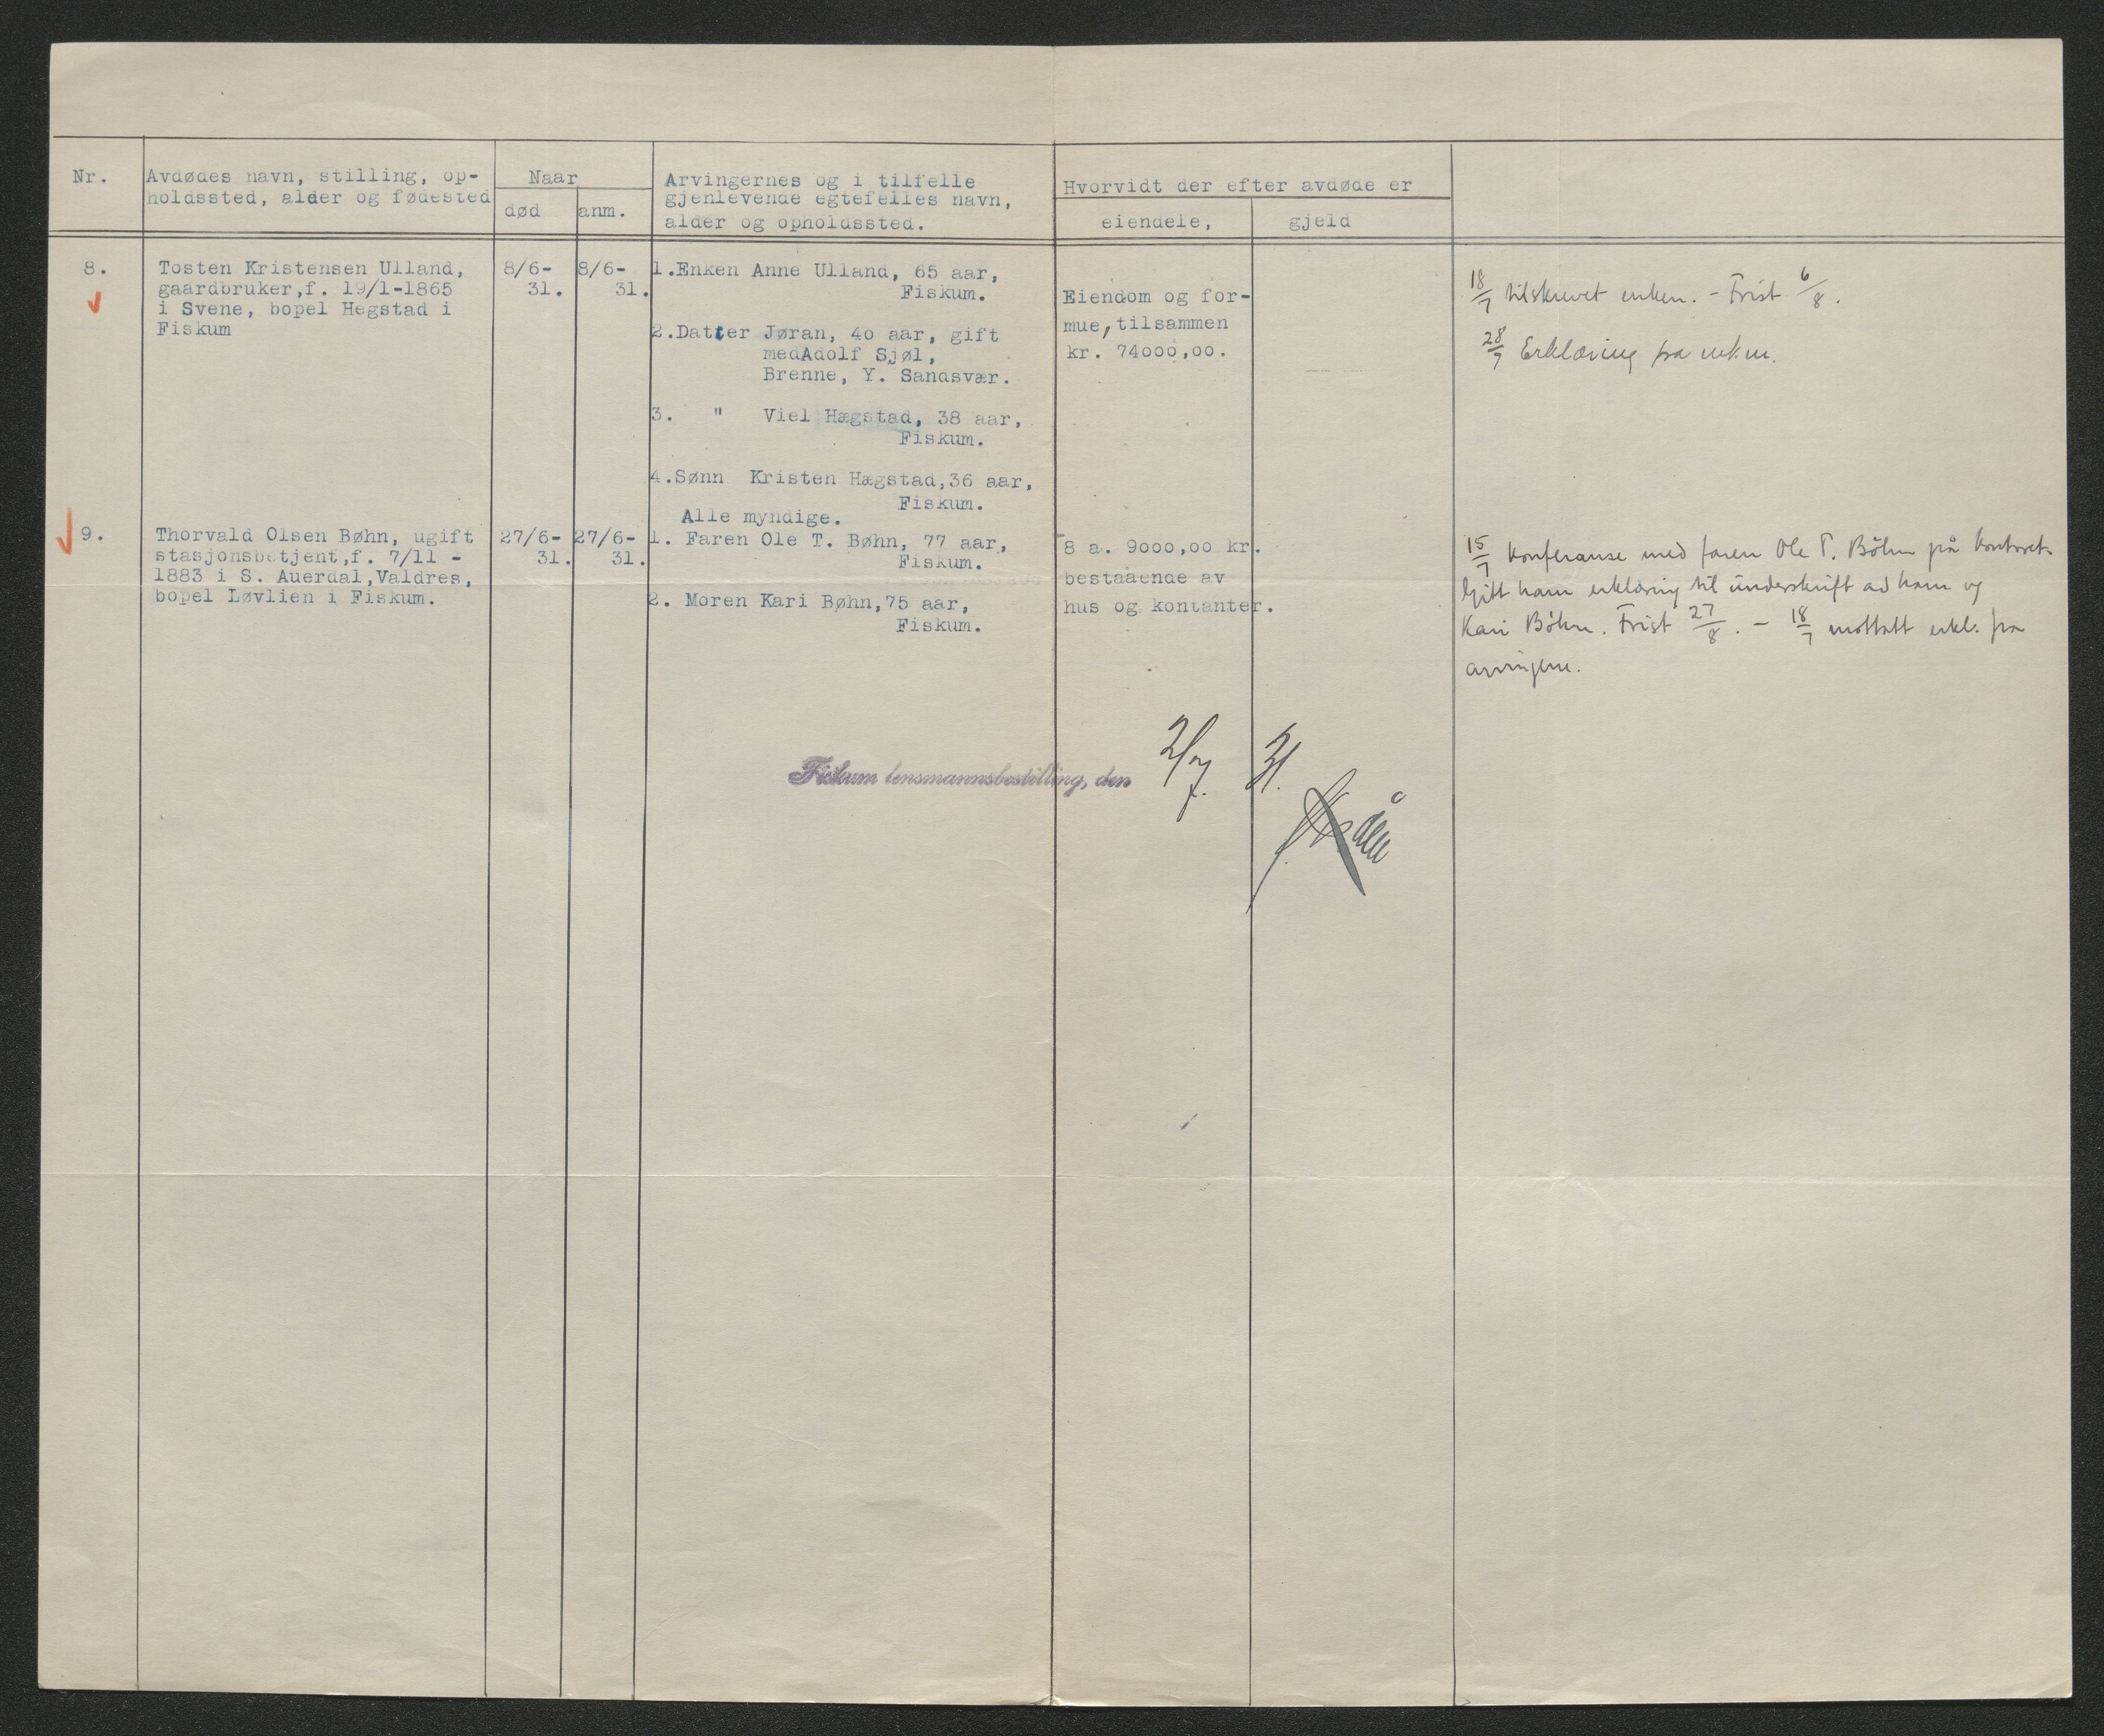 Nr.
Avdødes navn, stilling, op-
holdssted, alder og fødested
Naar
død
anm.
Arvingernes og i tilfelle
gjenlevende egtefelles navn,
alder og opholdssted.
Hvorvidt der efter avdøde er
eiendele,
gjeld
8.
Tosten Kristensen Ulland,
gaardbruker,f. 19/1-1865
i Svene, bopel Hegstad i
Fiskum
8/6-
31.
8/6-
31.
1.Enken Anne Ulland, 65 aar,
Fiskum.
2.Datter Jøran, 4o aar, gift
medAdolf Sjøl,
Brenne, Y. Sandsvær.
3. " Viel Hægstad, 38 aar,
Fiskum.
4.Sønn Kristen Hægstad,36 aar,
Fiskum.
Alle myndige.
Eiendom og for-
mue, tilsammen
kr. 74ooo,oo.
18/7 tilskrevet enken. - Frist 6/8.
28/7 Erklæring fra enken.
9.
Thorvald Olsen Bøhn, ugift
stasjonsbetjent,f. 7/11 -
1883 i S. Auerdal,Valdres,
bopel Løvlien i Fiskum.
27/6-
31.
27/6-
31.
1. Faren Ole T. Bøhn, 77 aar,
Fiskum.
2. Moren Kari Bøhn,75 aar,
Fiskum.
8 a. 9ooo,oo kr.
bestaaende av
hus og kontanter.
15/7 Konferanse med faren Ole T. Böhn på kontoret.
Gitt ham erklæring til underskrift av ham og
Kari Böhn. Frist 27/8. - 18/7 mottatt erkl. fra
arvingene.
Fiskum lensmannsbestilling, den 2/7 31.